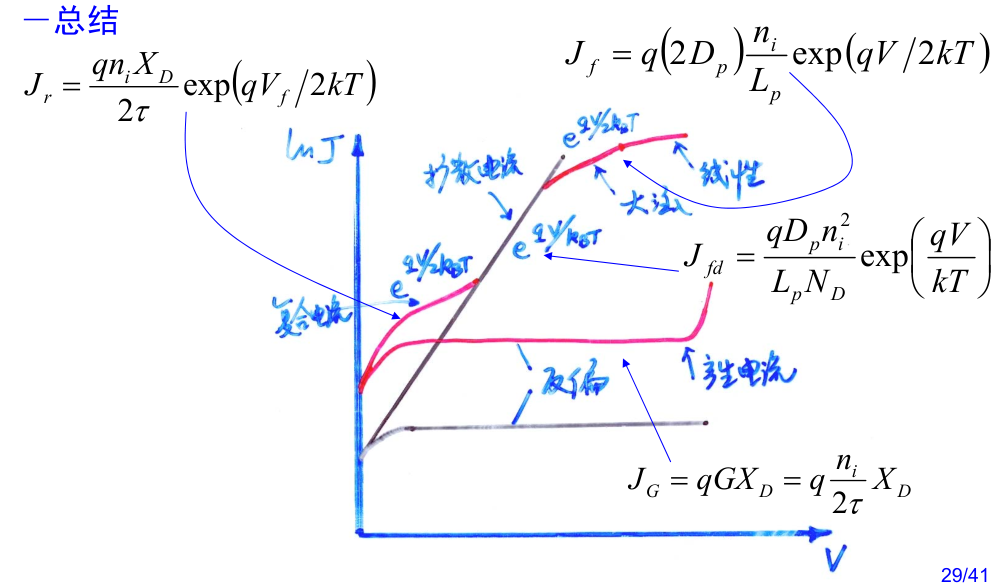 一总结
J_r = qn_iX_D/2τ exp(qV_f/2kT)
J_f = q(2D_p) n_i/L_p exp(qV/2kT)
ln J
e^{qV/2k_BT}
扩散电流
线性
大注入
e^{qV/k_BT}
J_fd = qD_pn_i^2/L_pN_D exp(qV/kT)
e^{qV/2k_BT}
复合电流
反偏
产生电流
J_G = qGX_D = q n_i/2τ X_D
V
29/41